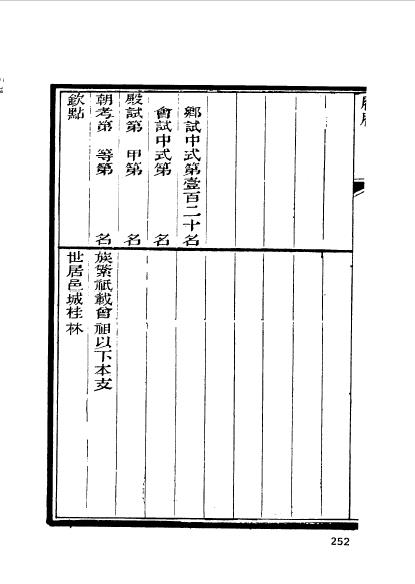 鄉試中式第壹百二十名
會試中式第　名
殿試第　甲第　名
朝考第　等第　名
欽點
族繁祇載曾祖以下本支
世居邑城桂林
252